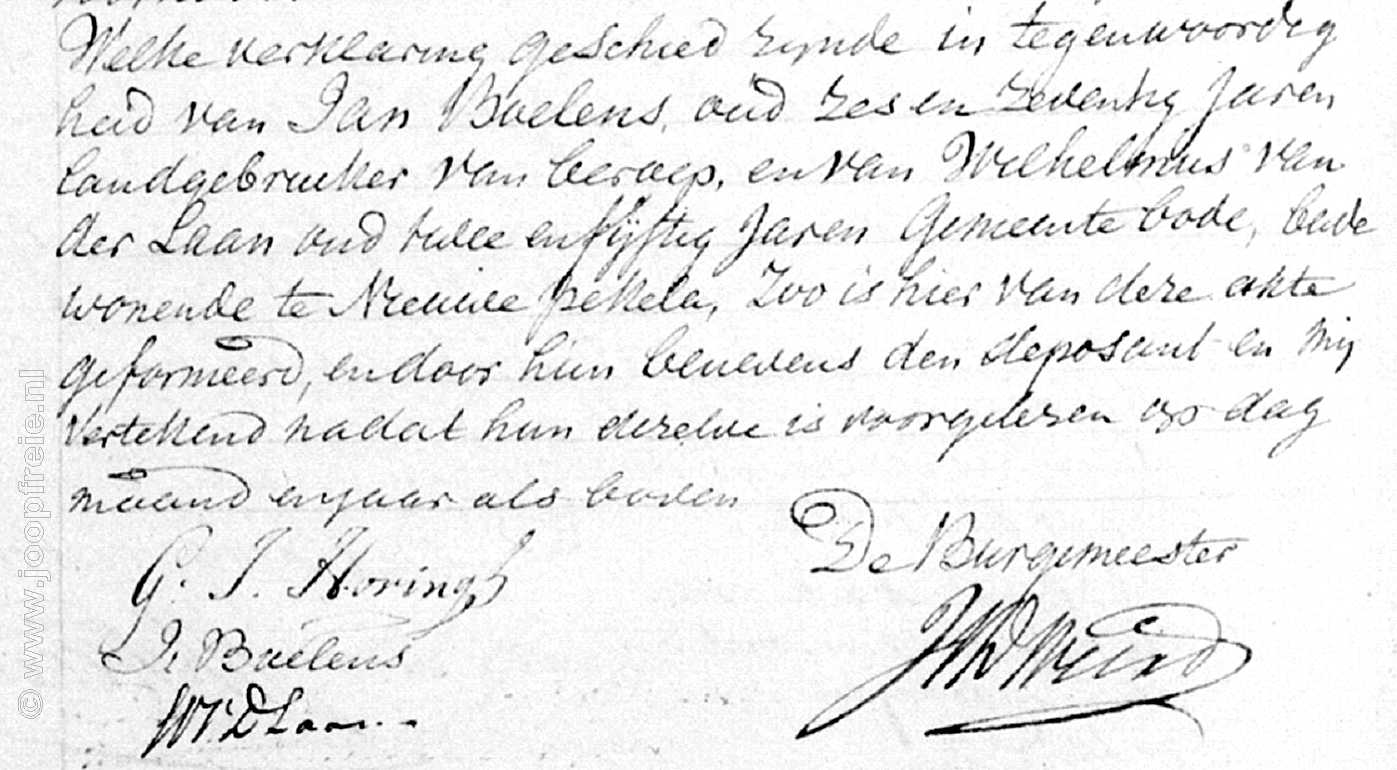 Welke verklaring geschied zynde in tegenwoordig
heid van Jan Boelens, oud zes en zeventig Jaren
landgebruiker van beroep, en van Wilhelmus van
der Laan oud twee en fyftig Jaren Gemeente bode, beide
wonende te Nieuwe Pekela, Zoo is hier van deze akte
geformeerd, en door hun benevens den deposant en my
vertekend nadat hun dezelve is voorgelezen op dag
maand en jaar als boven
De Burgemeester
G. J. Horingh
J. Boelens
WVD Laan
© www.joopfreie.nl